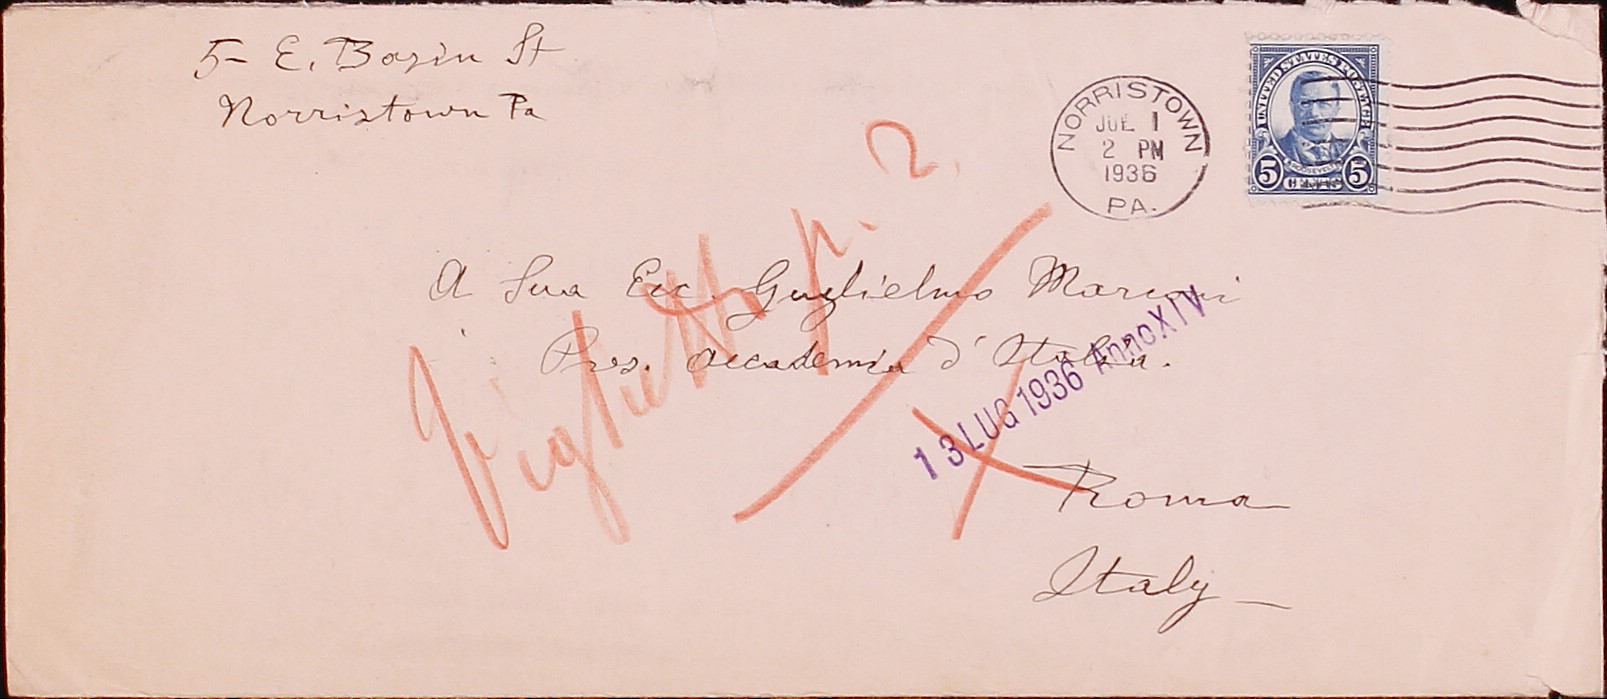 5- E. Basin St
Norristown Pa
NORRISTOWN
JUL 1
2 PM
1936
PA.
UNITED STATES POSTAGE
ROOSEVELT
5 CENTS 5
A Sua Ecc. Guglielmo Marconi
Pres. Accademia d'Italia.
Roma
Italy
13 LUG 1936 Anno XIV